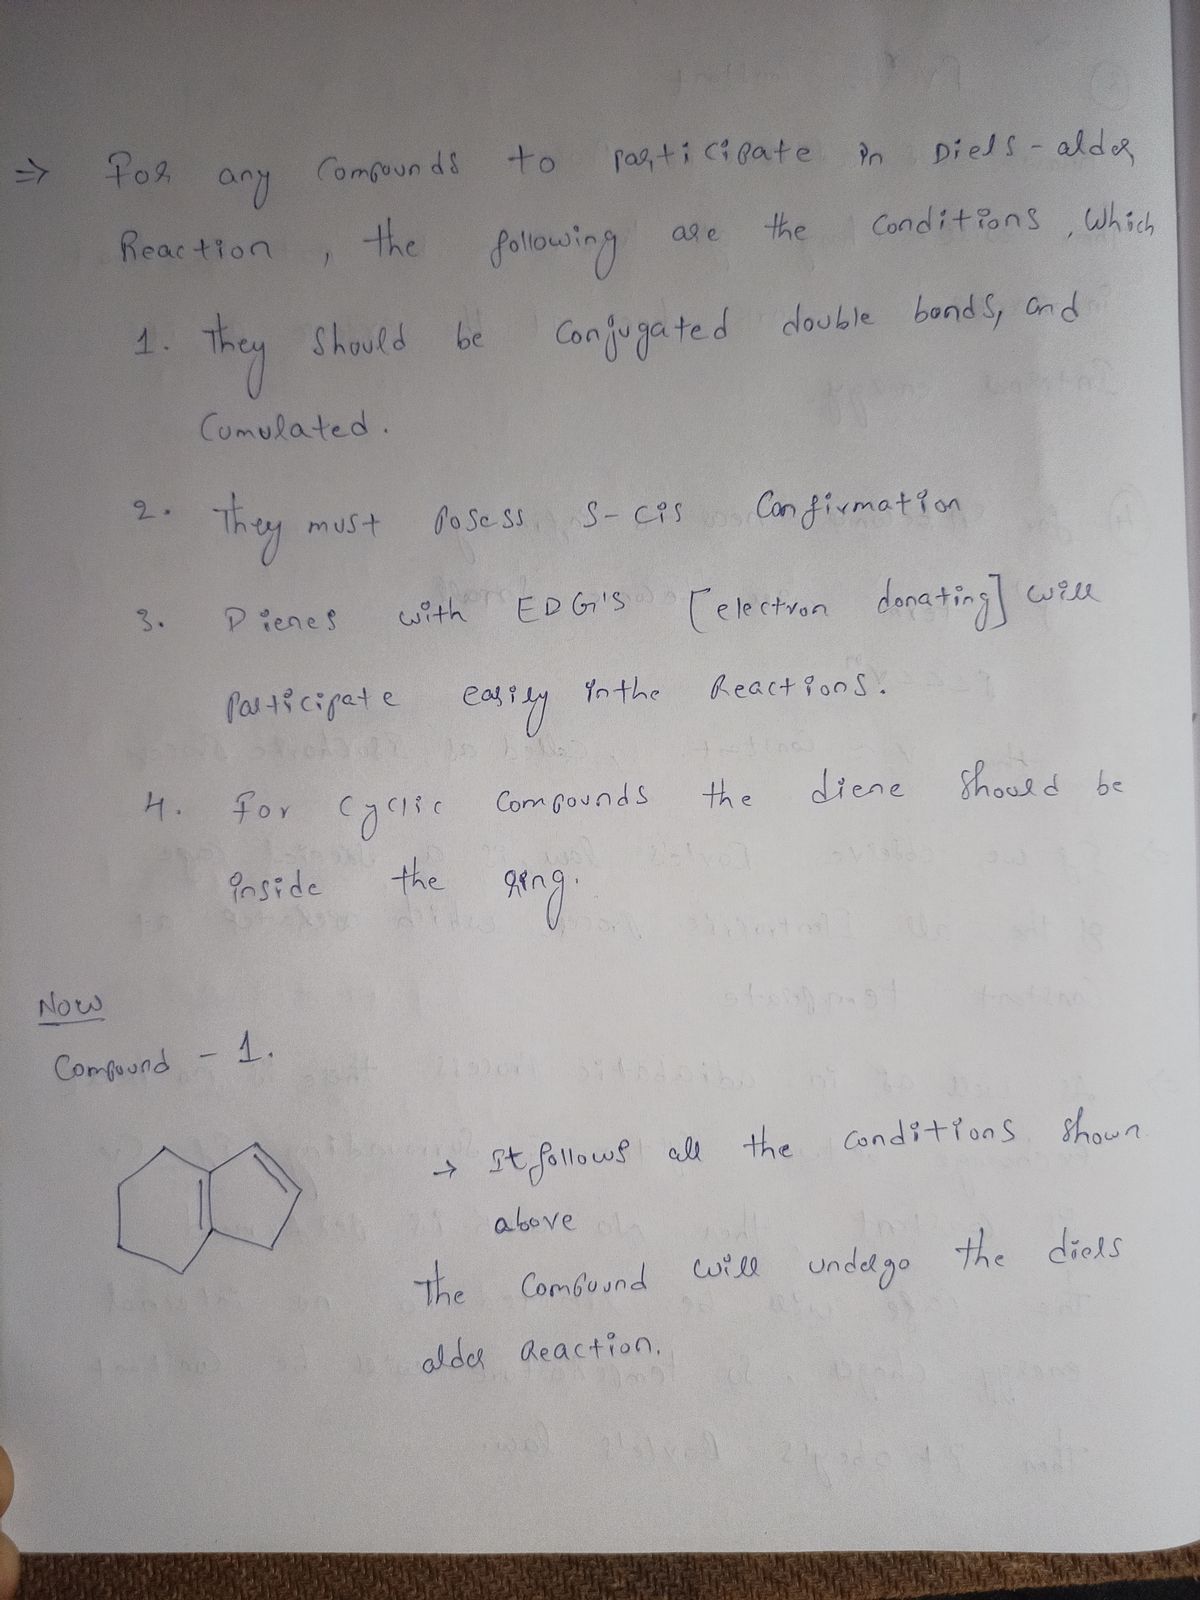 ⇒ For any Compounds to participate in Diels-alder
Reaction, the following are the Conditions, Which
1. They Should be Conjugated double bonds, and
Cumulated.
2. They must Posess S-cis Confirmation
3. Dienes with EDG's [electron donating] will
Participate easily in the Reactions.
4. For Cyclic Compounds the diene Should be
inside the ring.
Now
Compound - 1.
→ It follows all the conditions shown
above
The Compound will undergo the diels
alder Reaction.